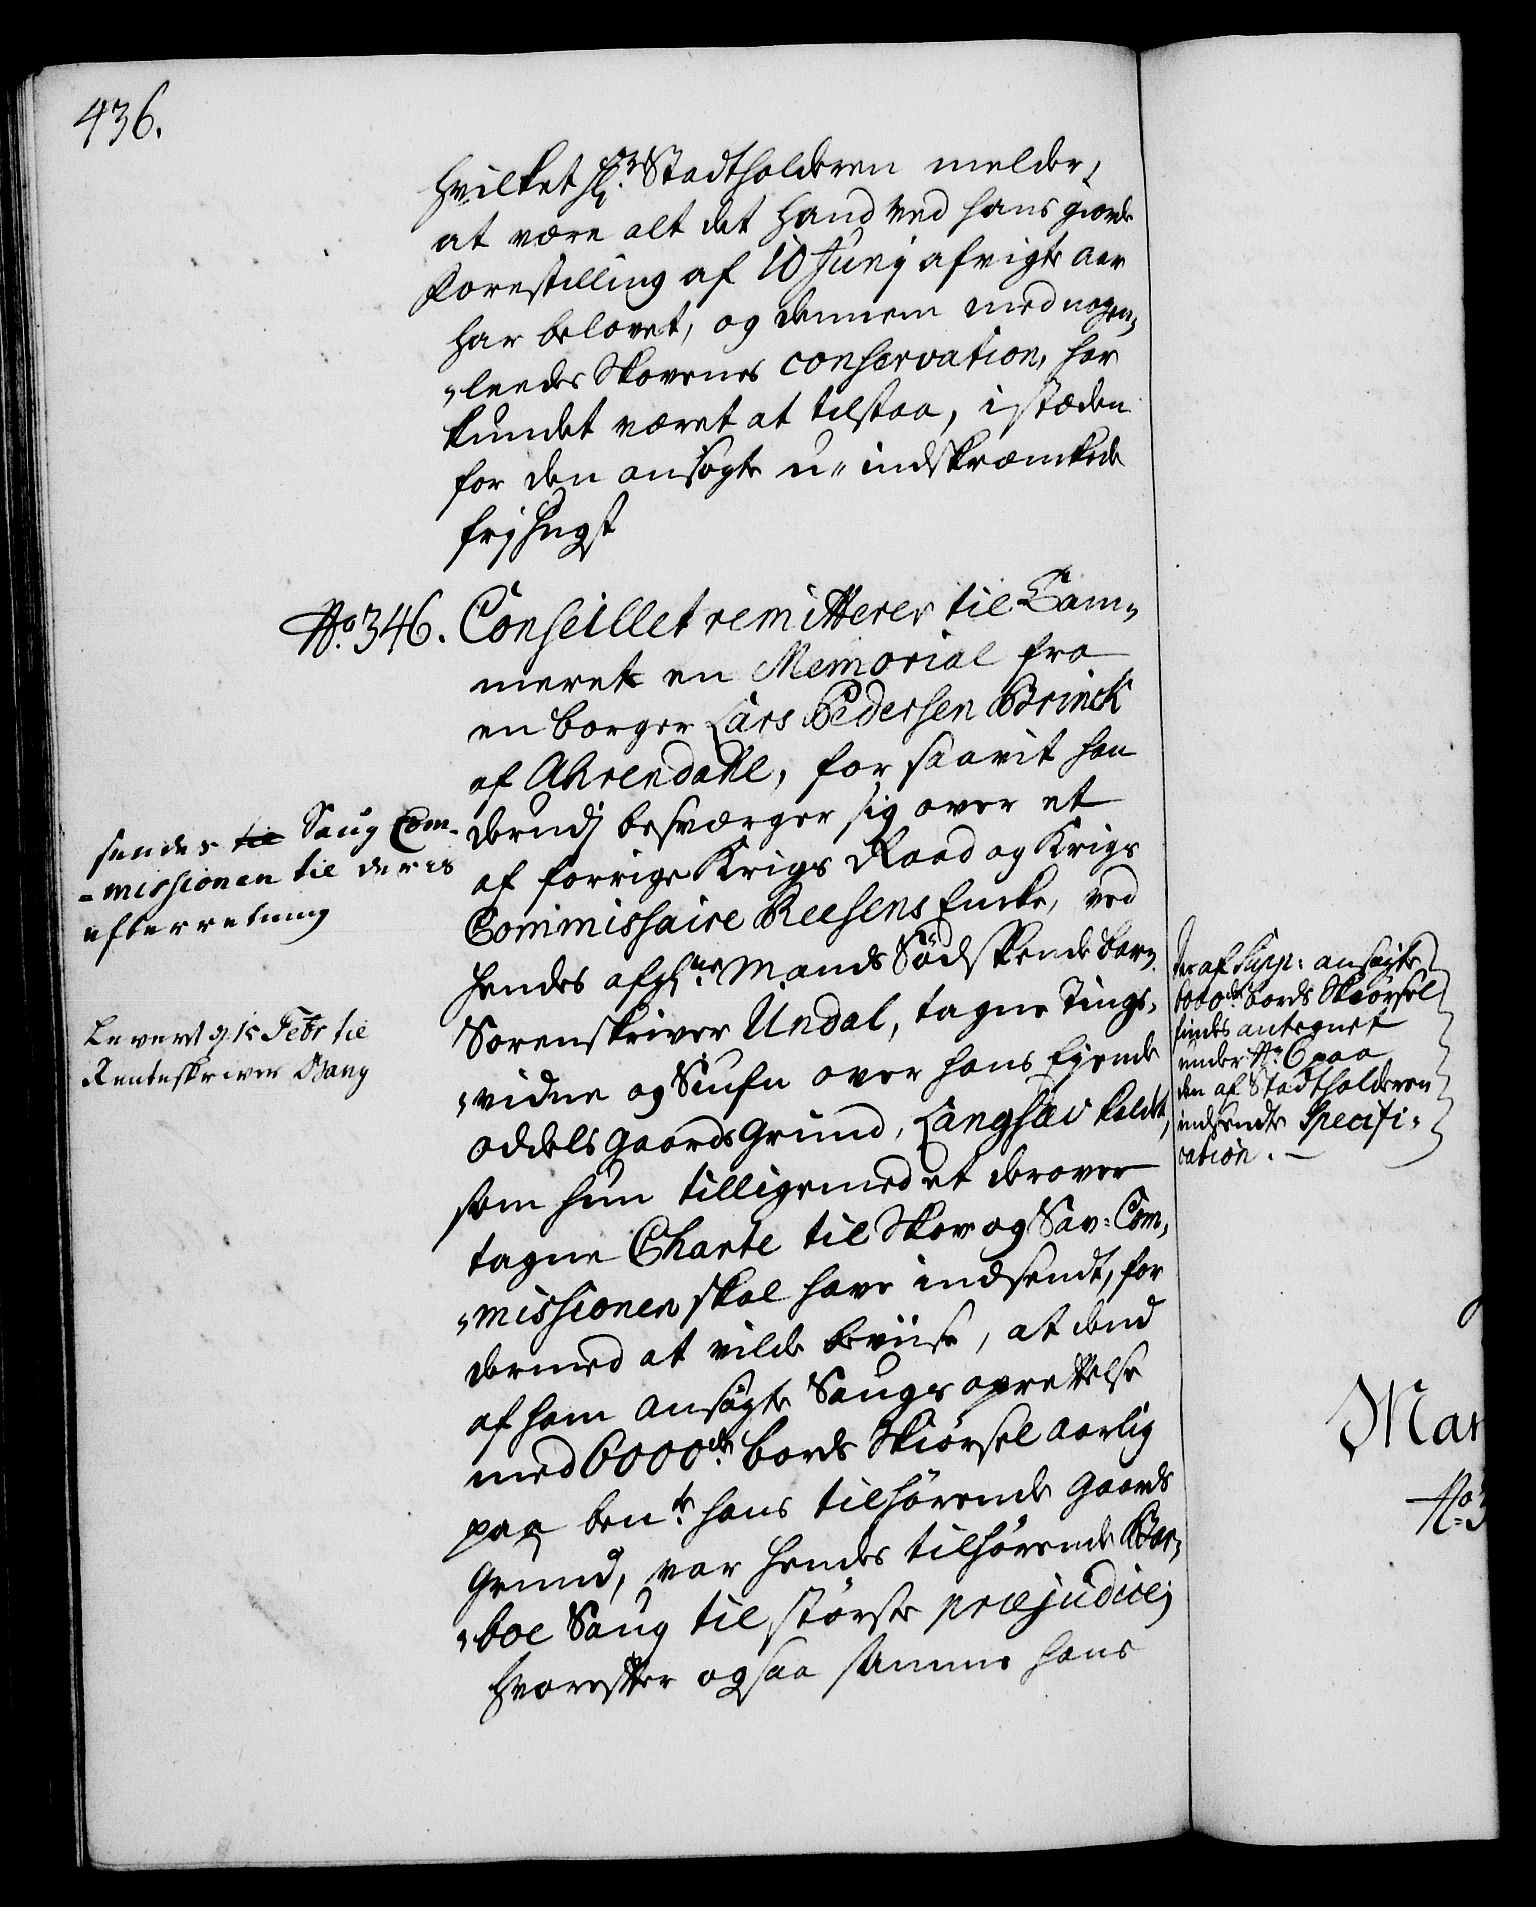 436.
hvilket H:r Stadtholderen melder,
at være alt det hand ved hans giorde
Forestilling af 10 Junj afvigte aar
har belovet, og dennem med nogen„
„leedes Skovenes conservation, har
kundet været at tilstaa, i stæden
for den ansøgte u„indskrænckede
frj Hugst
No. 346. Conseillet remitterer til Cam„
meret en Memorial fra
en borger Lars Pedersen Brinck
af Ahrendahl, for saavit han
derudj besværger sig over et
af forrige Krigs Raad og Krigs
Commissaire Reesens Encke, ved
hendes afg: Mands Södskendebarn
Sorenskriver Undal, tagne Tings„
„vidne og Siufn over hans Ejende
oddels Gaards Grund, Langsæi kaldet,
som hun tilligemed et derover
tagne Charte til Skov og Sav=Com„
„missionen skal have indsendt, for
dermed at vilde beviise, at dend
af ham ansøgte Saugs oprettelse
med 6000de bords Skiørsel aarlig
paa ben:te hans tilhørende Gaards
Grund, var hendes tilhørende Bar„
„boe Saug til største præjudice;
hvorefter ogsaa samme hans
sendes til Saug Com-
-missionen til deris
efterretning
Levert d. 15 Febr til
Renteskriver Bang
der af Supp: ansøgte
6000de bords Skiørsel
findes antegnet
under No. 6 paa
den af Stadtholderen
indsendte Specifi„
cation. —
Mar
No. 3